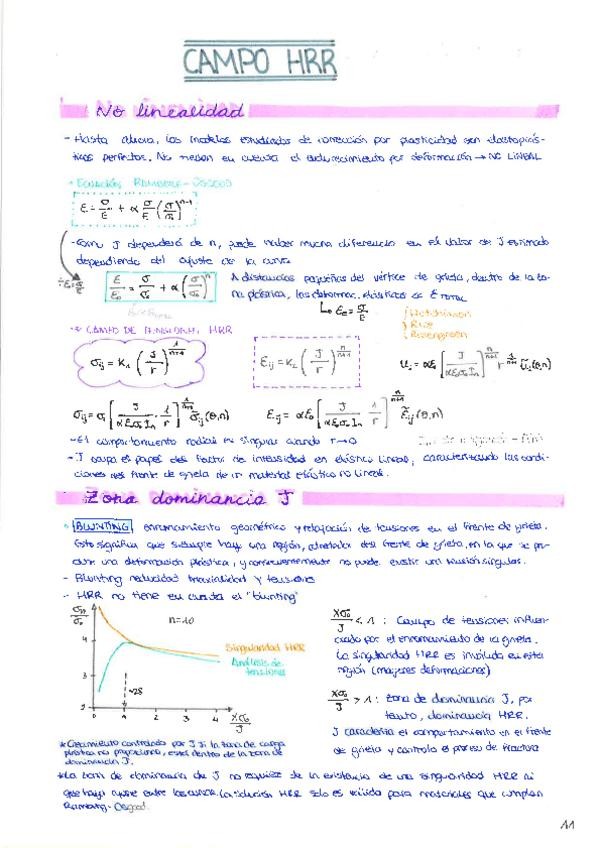 CAMPO HRR
No linealidad
- Hasta ahora, los modelos estudiados de corrección por plasticidad son elastoplás-
ticos perfectos. No tienen en cuenta el endurecimiento por deformación → NO LINEAL
* ECUACIÓN RAMBERG-OSGOOD
ε = σ/E + α σ/E (σ/σ₀)^(n-1)
- Como J dependerá de n, puede haber mucha diferencia en el valor de J estimado
dependiendo del ajuste de la curva
ε/ε₀ = σ/σ₀ + α (σ/σ₀)^n
A distancias pequeñas del vértice de grieta, dentro de la zo-
na plástica, las deformac. elásticas de ε total
↳ εe = σ/E
Hutchinson
Rice
Rosengreen
* CAMPO DE TENSIONES HRR
σij = K₁ (J/r)^(1/(n+1))
εij = K₂ (J/r)^(n/(n+1))
σij = σ₀ [J/(αε₀σ₀In) · 1/r]^(1/(n+1)) σ̃ij(θ,n)
εij = αε₀ [J/(αε₀σ₀In) · 1/r]^(n/(n+1)) ε̃ij(θ,n)
- El comportamiento radial es singular cuando r → 0
- J ocupa el papel del factor de intensidad en elástico lineal, caracterizando las condi-
ciones del frente de grieta de un material elástico no lineal.
Zona dominancia J
* BLUNTING enromamiento geométrico y relajación de tensiones en el frente de grieta.
Esto significa que siempre hay una región, alrededor del frente de grieta, en la que se pro-
duce una deformación plástica, y consecuentemente no puede existir una tensión singular.
- Blunting reduce triaxialidad y tensiones
- HRR no tiene en cuenta el "blunting"
σyy/σ₀
n=10
Singularidad HRR
Análisis de
tensiones
4
3
2
0 1 2 3 4 5
≈2δ
Xσ₀/J
Xσ₀/J < 1 : Campo de tensiones influen-
ciado por el enromamiento de la grieta.
La singularidad HRR es inválida en esta
región (mayores deformaciones)
Xσ₀/J > 1 : Zona de dominancia J, por
tanto, dominancia HRR.
J caracteriza el comportamiento en el frente
de grieta y controla el proceso de fractura
* Crecimiento controlado por J si la zona de carga
plástica no proporcional, está dentro de la zona de
dominancia J.
* La zona de dominancia de J no requiere de la existencia de una singularidad HRR ni
que haya ajuste entre las curvas. La solución HRR solo es válida para materiales que cumplan
Ramberg-Osgood.
11